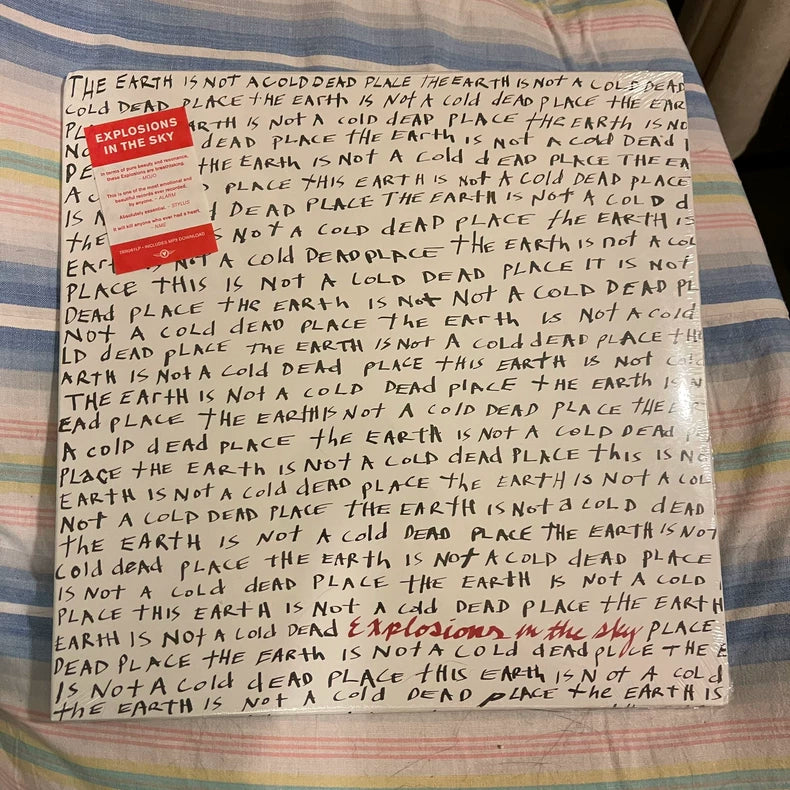 THE EARTH IS NOT A COLD DEAD PLACE THE EARTH IS NOT A COLD DEAD
COLD DEAD PLACE tHE EARth IS NOT A cold dEAD pLACE tHE EAR
PL
EARTH IS NOT A cold dEAD PLACE thE EARTH IS NO
NO
dEAD PLACE tHE EARth IS NOT A cold DEAd
DE
tHE EARth IS NOT A Cold d EAD PLACE THE EA
A C
PLACE tHIS EARTH IS NOt A Cold DEAD PLACE
IS N
DEAD PLACE THE EARTH IS NOT A COLD d
the
S NOt A COLD dEAD pLACE thE EARTH IS
EART
NOT A cold DEAD PLACE tHE EARth IS not A COL
EXPLOSIONS
IN THE SKY
In terms of pure beauty and resonance,
these Explosions are breathtaking.
- MOJO
This is one of the most emotional and
beautiful records ever recorded,
by anyone. - ALARM
Absolutely essential. - STYLUS
It will kill anyone who ever had a heart.
- NME
TRR061LP • INCLUDES MP3 DOWNLOAD
PLACE tHIS IS NOT A COLD DEAD PLACE IT IS NOT
DEAd PLACE tHE EARTH IS NOt NOt A COLD DEAD PL
NOT A COLD dEAD PLACE The EArth IS NOT A Cold
LD dEAD pLACE THE EARTH IS NOT A COLD dEAD pLACE tH
ARTH IS NOT A Cold DEAd PLACE tHIS EARTH IS NOT COLD
THE EARTH IS NOT A COLD DEAD PLACE tHE EARTH IS N
EAd PLACE THE EARTH IS NOT A COLD DEAD PLACE THE E
A COLD dEAD PLACE thE EARTH IS NOT A COLD DEAd IS
PLAcE tHE EARth IS NOT A COLD dEAD PLACE this IS NO
EARTH IS NOT A Cold dEAD PLACE thE EARTH IS NOT A COL
NOt A COLD DEAD PLACE THE EARTH IS NOT a COLD dEAD
thE EARTH IS NOT A Cold DEAD PLACE THE EARTH IS NOT
COLD dEAd PLACE tHE EARTH IS NOT A COLD dEAD PLACE
IS NOT A Cold dEAD PLACE tHE EARtH IS NOT A COLD
PLACE tHIS EARTH IS NOT A Cold DEAD PLACE tHE EARTH
EARTH IS NOT A COld DEAD Explosions in the sky PLACE
DEAD PLACE tHE EARTH IS NOT A COLD dEAd pLACE THE E
IS NOT A Cold dEAD PLACE tHIS EARth IS NOT A COLd
thE EARTH IS NOT A Cold DEAD pLACE thE EARTH IS